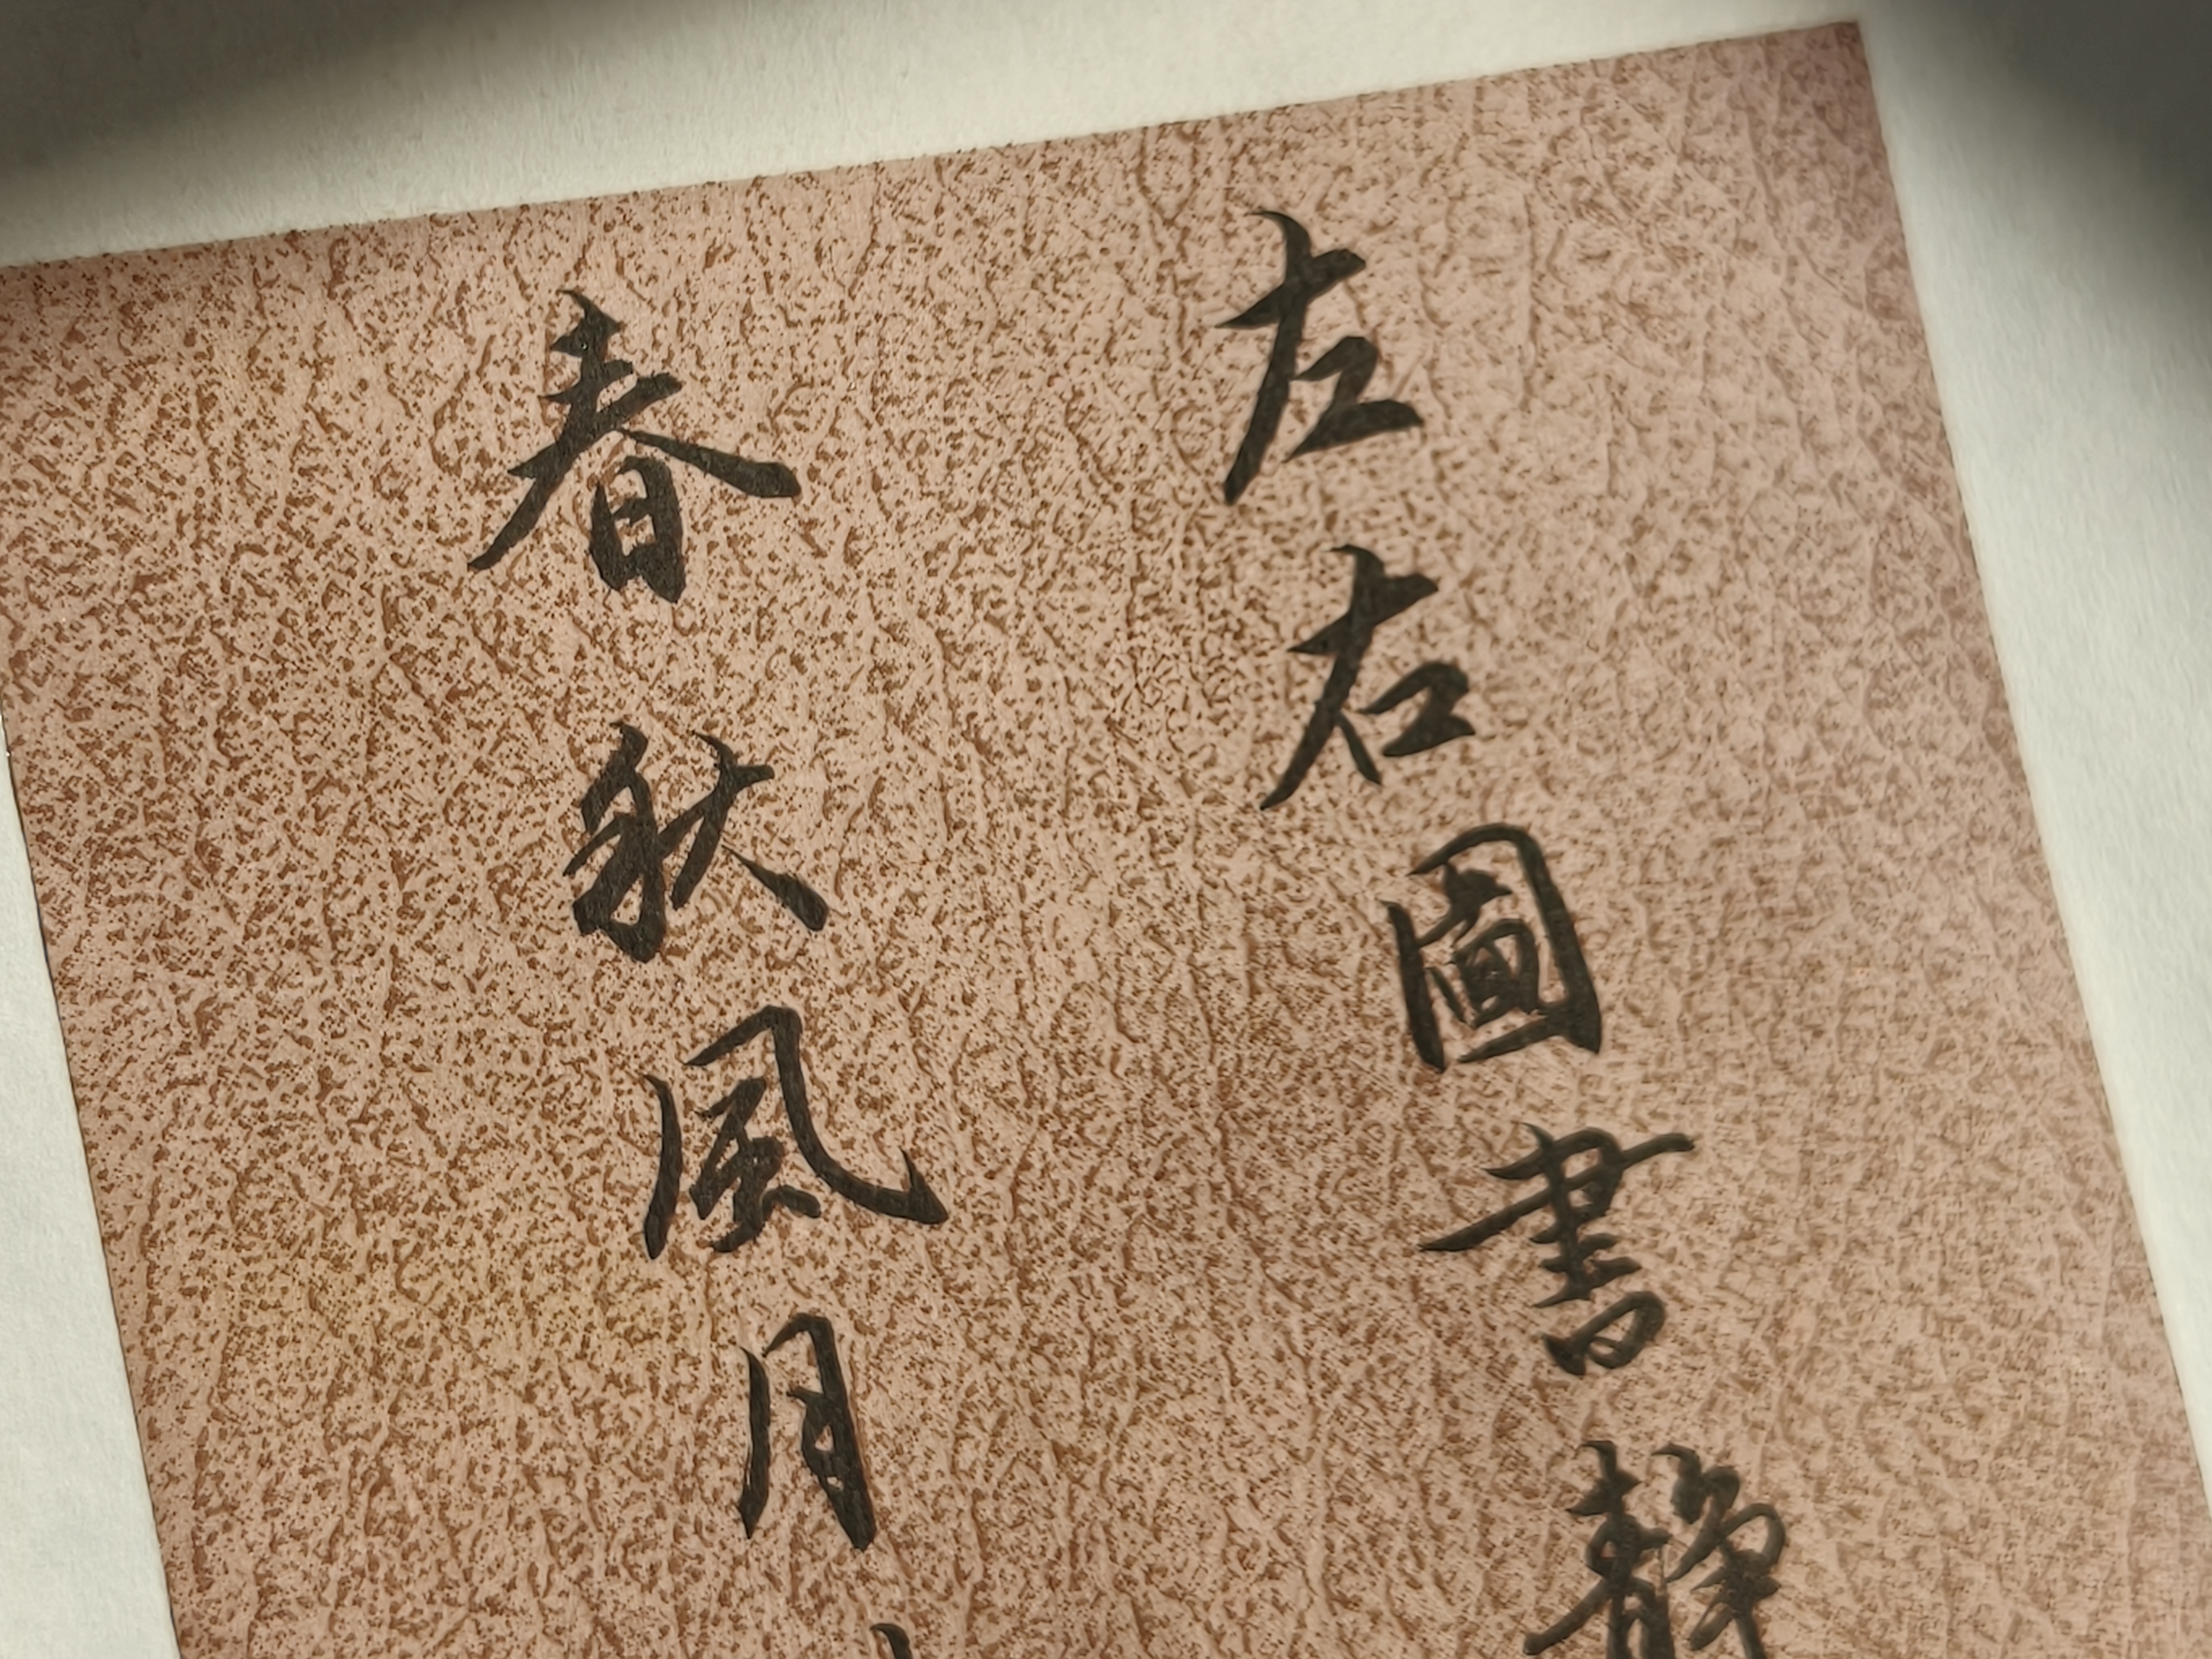 左右圖書靜
春秋風月